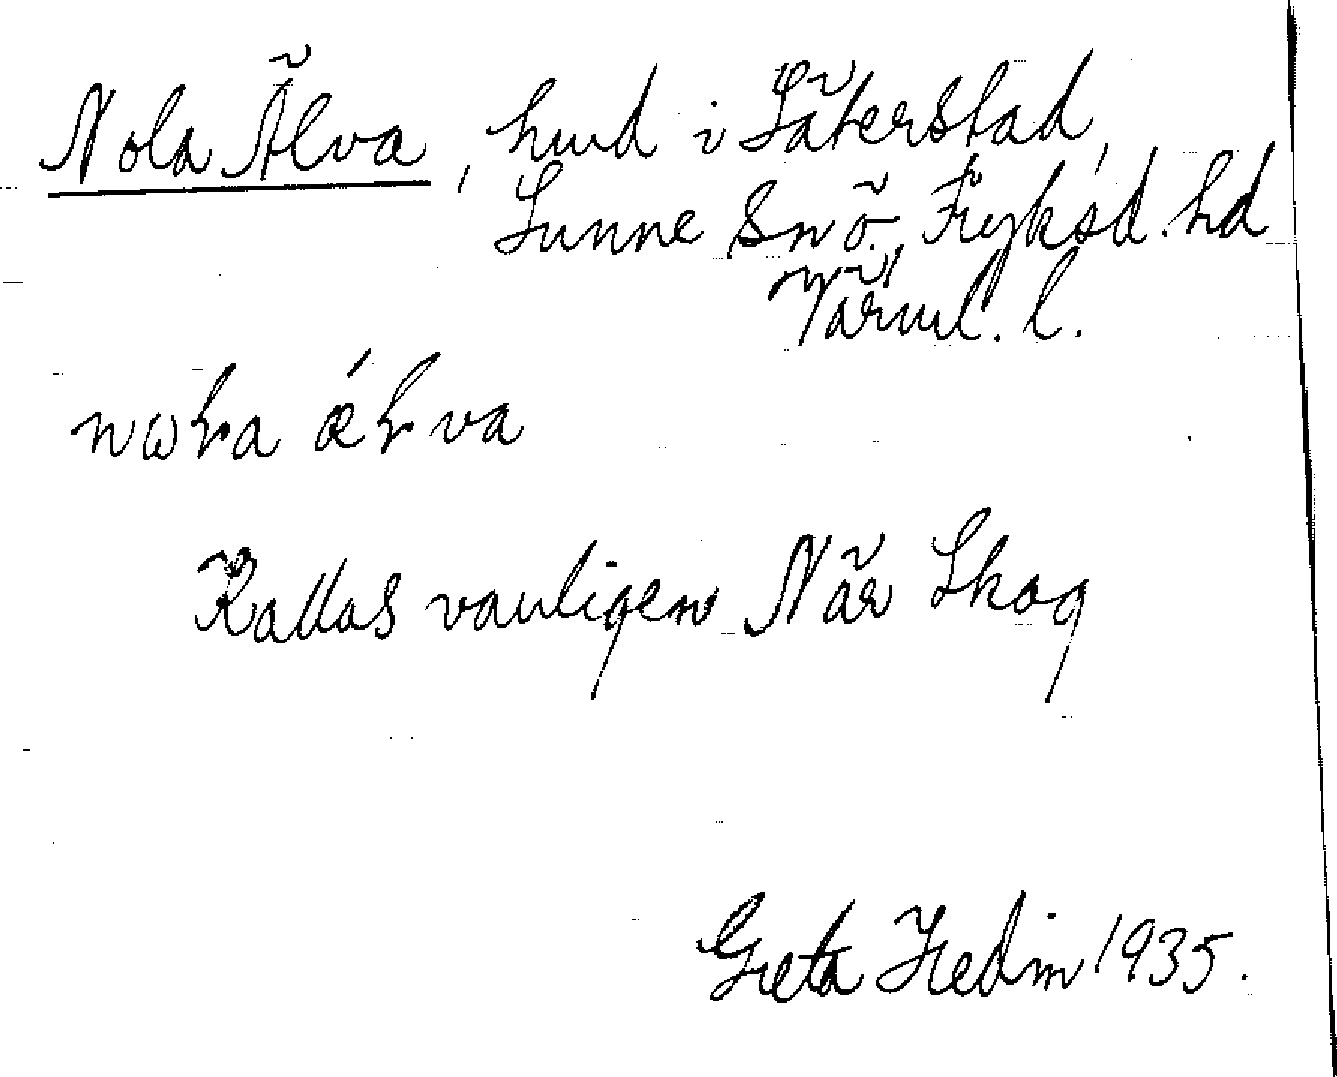 Nola Älva, hmd i Säterstad,
Sunne snö. Fryksd. hd
Värml. l.
Kallas vanligen När Skog
Greta Hedin 1935.